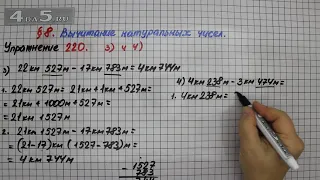 4АЛ5.RU
§8. Вычитание натуральных чисел.
Упражнение 220. 3) и 4)
3) 22км 527м - 17км 783м = 4км 744м
1. 22км 527м = 21км + 1км + 527м =
= 21км + 1000м + 527м =
= 21км 1527м
2. 21км 1527м - 17км 783м =
= (21-17)км (1527-783)м =
= 4км 744м
- 1527
783
4) 4км 238м - 3км 474м =
1. 4км 238м =